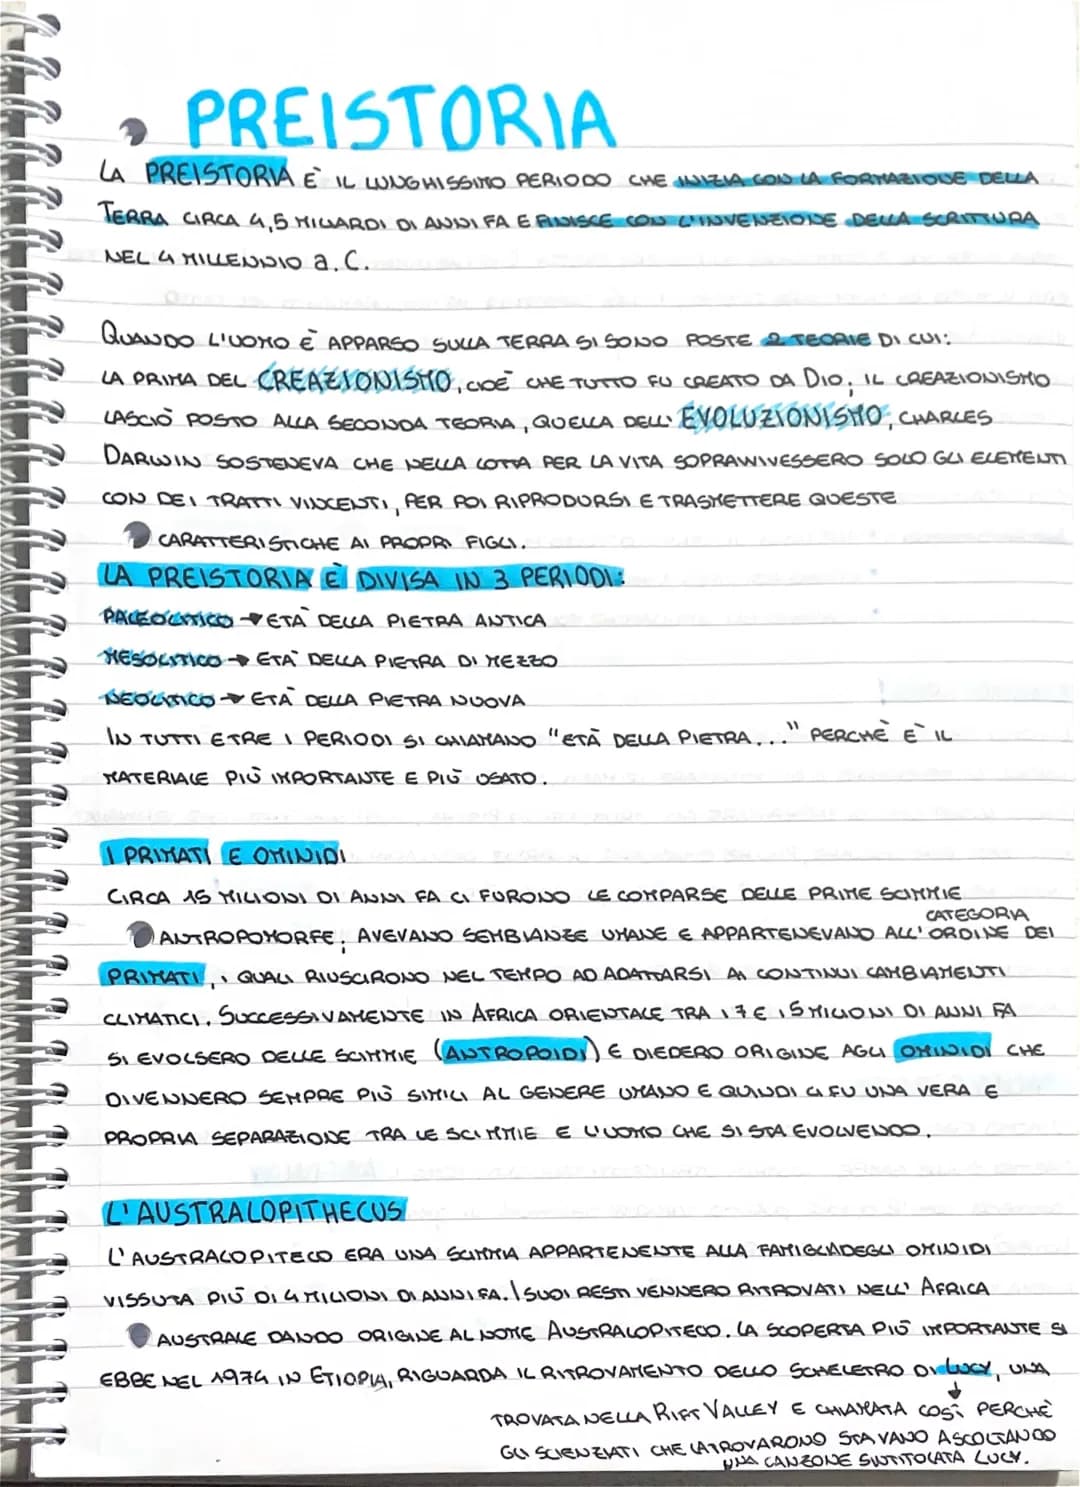 PREISTORIA
LA PREISTORIA È IL LUNGHISSIMO PERIODO CHE INIZIA CON LA FORMAZIONE DELLA
TERRA CIRCA 4,5 MILIARDI DI ANNI FA E FINISCE CON L'INVENZIONE DELLA SCRITTURA
NEL 4 MILLENNIO a.C.
QUANDO L'UOMO È APPARSO SULLA TERRA SI SONO POSTE 2 TEORIE DI CUI:
LA PRIMA DEL CREAZIONISMO, CIOÈ CHE TUTTO FU CREATO DA DIO; IL CREAZIONISMO
LASCIÒ POSTO ALLA SECONDA TEORIA, QUELLA DELL'EVOLUZIONISMO, CHARLES
DARWIN SOSTENEVA CHE NELLA LOTTA PER LA VITA SOPRAVVIVESSERO SOLO GLI ELEMENTI
CON DEI TRATTI VINCENTI, PER POI RIPRODURSI E TRASMETTERE QUESTE
CARATTERISTICHE AI PROPRI FIGLI.
LA PREISTORIA È DIVISA IN 3 PERIODI:
PALEOLITICO → ETÀ DELLA PIETRA ANTICA
MESOLITICO → ETÀ DELLA PIETRA DI MEZZO
NEOLITICO → ETÀ DELLA PIETRA NUOVA
IN TUTTI E TRE I PERIODI SI CHIAMANO "ETÀ DELLA PIETRA..." PERCHÈ È IL
MATERIALE PIÙ IMPORTANTE E PIÙ USATO.
I PRIMATI E OMINIDI
CIRCA 15 MILIONI DI ANNI FA CI FURONO LE COMPARSE DELLE PRIME SCIMMIE
CATEGORIA
ANTROPOMORFE; AVEVANO SEMBIANZE UMANE E APPARTENEVANO ALL'ORDINE DEI
PRIMATI, I QUALI RIUSCIRONO NEL TEMPO AD ADATTARSI AI CONTINUI CAMBIAMENTI
CLIMATICI. SUCCESSIVAMENTE IN AFRICA ORIENTALE TRA I 7 E I 5 MILIONI DI ANNI FA
SI EVOLSERO DELLE SCIMMIE (ANTROPOIDI) E DIEDERO ORIGINE AGLI OMINIDI CHE
DIVENNERO SEMPRE PIÙ SIMILI AL GENERE UMANO E QUINDI CI FU UNA VERA E
PROPRIA SEPARAZIONE TRA LE SCIMMIE E L'UOMO CHE SI STA EVOLVENDO.
L'AUSTRALOPITHECUS
L'AUSTRALOPITECO ERA UNA SCIMMIA APPARTENENTE ALLA FAMIGLIA DEGLI OMINIDI
VISSUTA PIÙ DI 4 MILIONI DI ANNI FA. I SUOI RESTI VENNERO RITROVATI NELL'AFRICA
AUSTRALE DANDO ORIGINE AL NOME AUSTRALOPITECO. LA SCOPERTA PIÙ IMPORTANTE SI
EBBE NEL 1974 IN ETIOPIA, RIGUARDA IL RITROVAMENTO DELLO SCHELETRO DI LUCY, UNA
↓
TROVATA NELLA RIFT VALLEY E CHIAMATA COSÌ PERCHÈ
GLI SCIENZIATI CHE LA TROVARONO STAVANO ASCOLTANDO
UNA CANZONE SINTITOLATA LUCY.